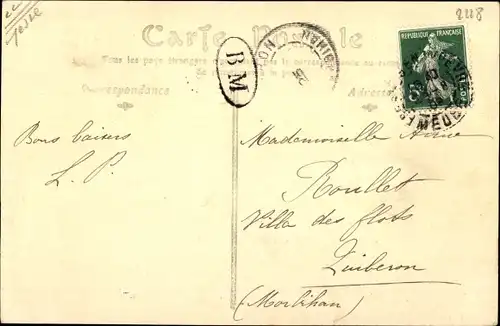 2218
Carte Postale
Tous les pays étrangers
Correspondance
Adresse
BM
RÉPUBLIQUE FRANÇAISE
Bons baisers
L. P.
Mademoiselle Anne
Roullet
Villa des flots
Quiberon
(Morbihan)